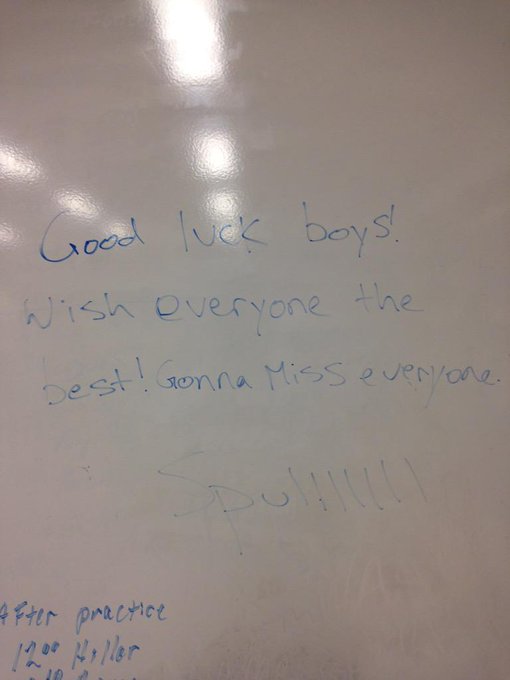 Good luck boys!
Wish everyone the
best! Gonna Miss everyone.
After practice
12⁰⁰ Hiller